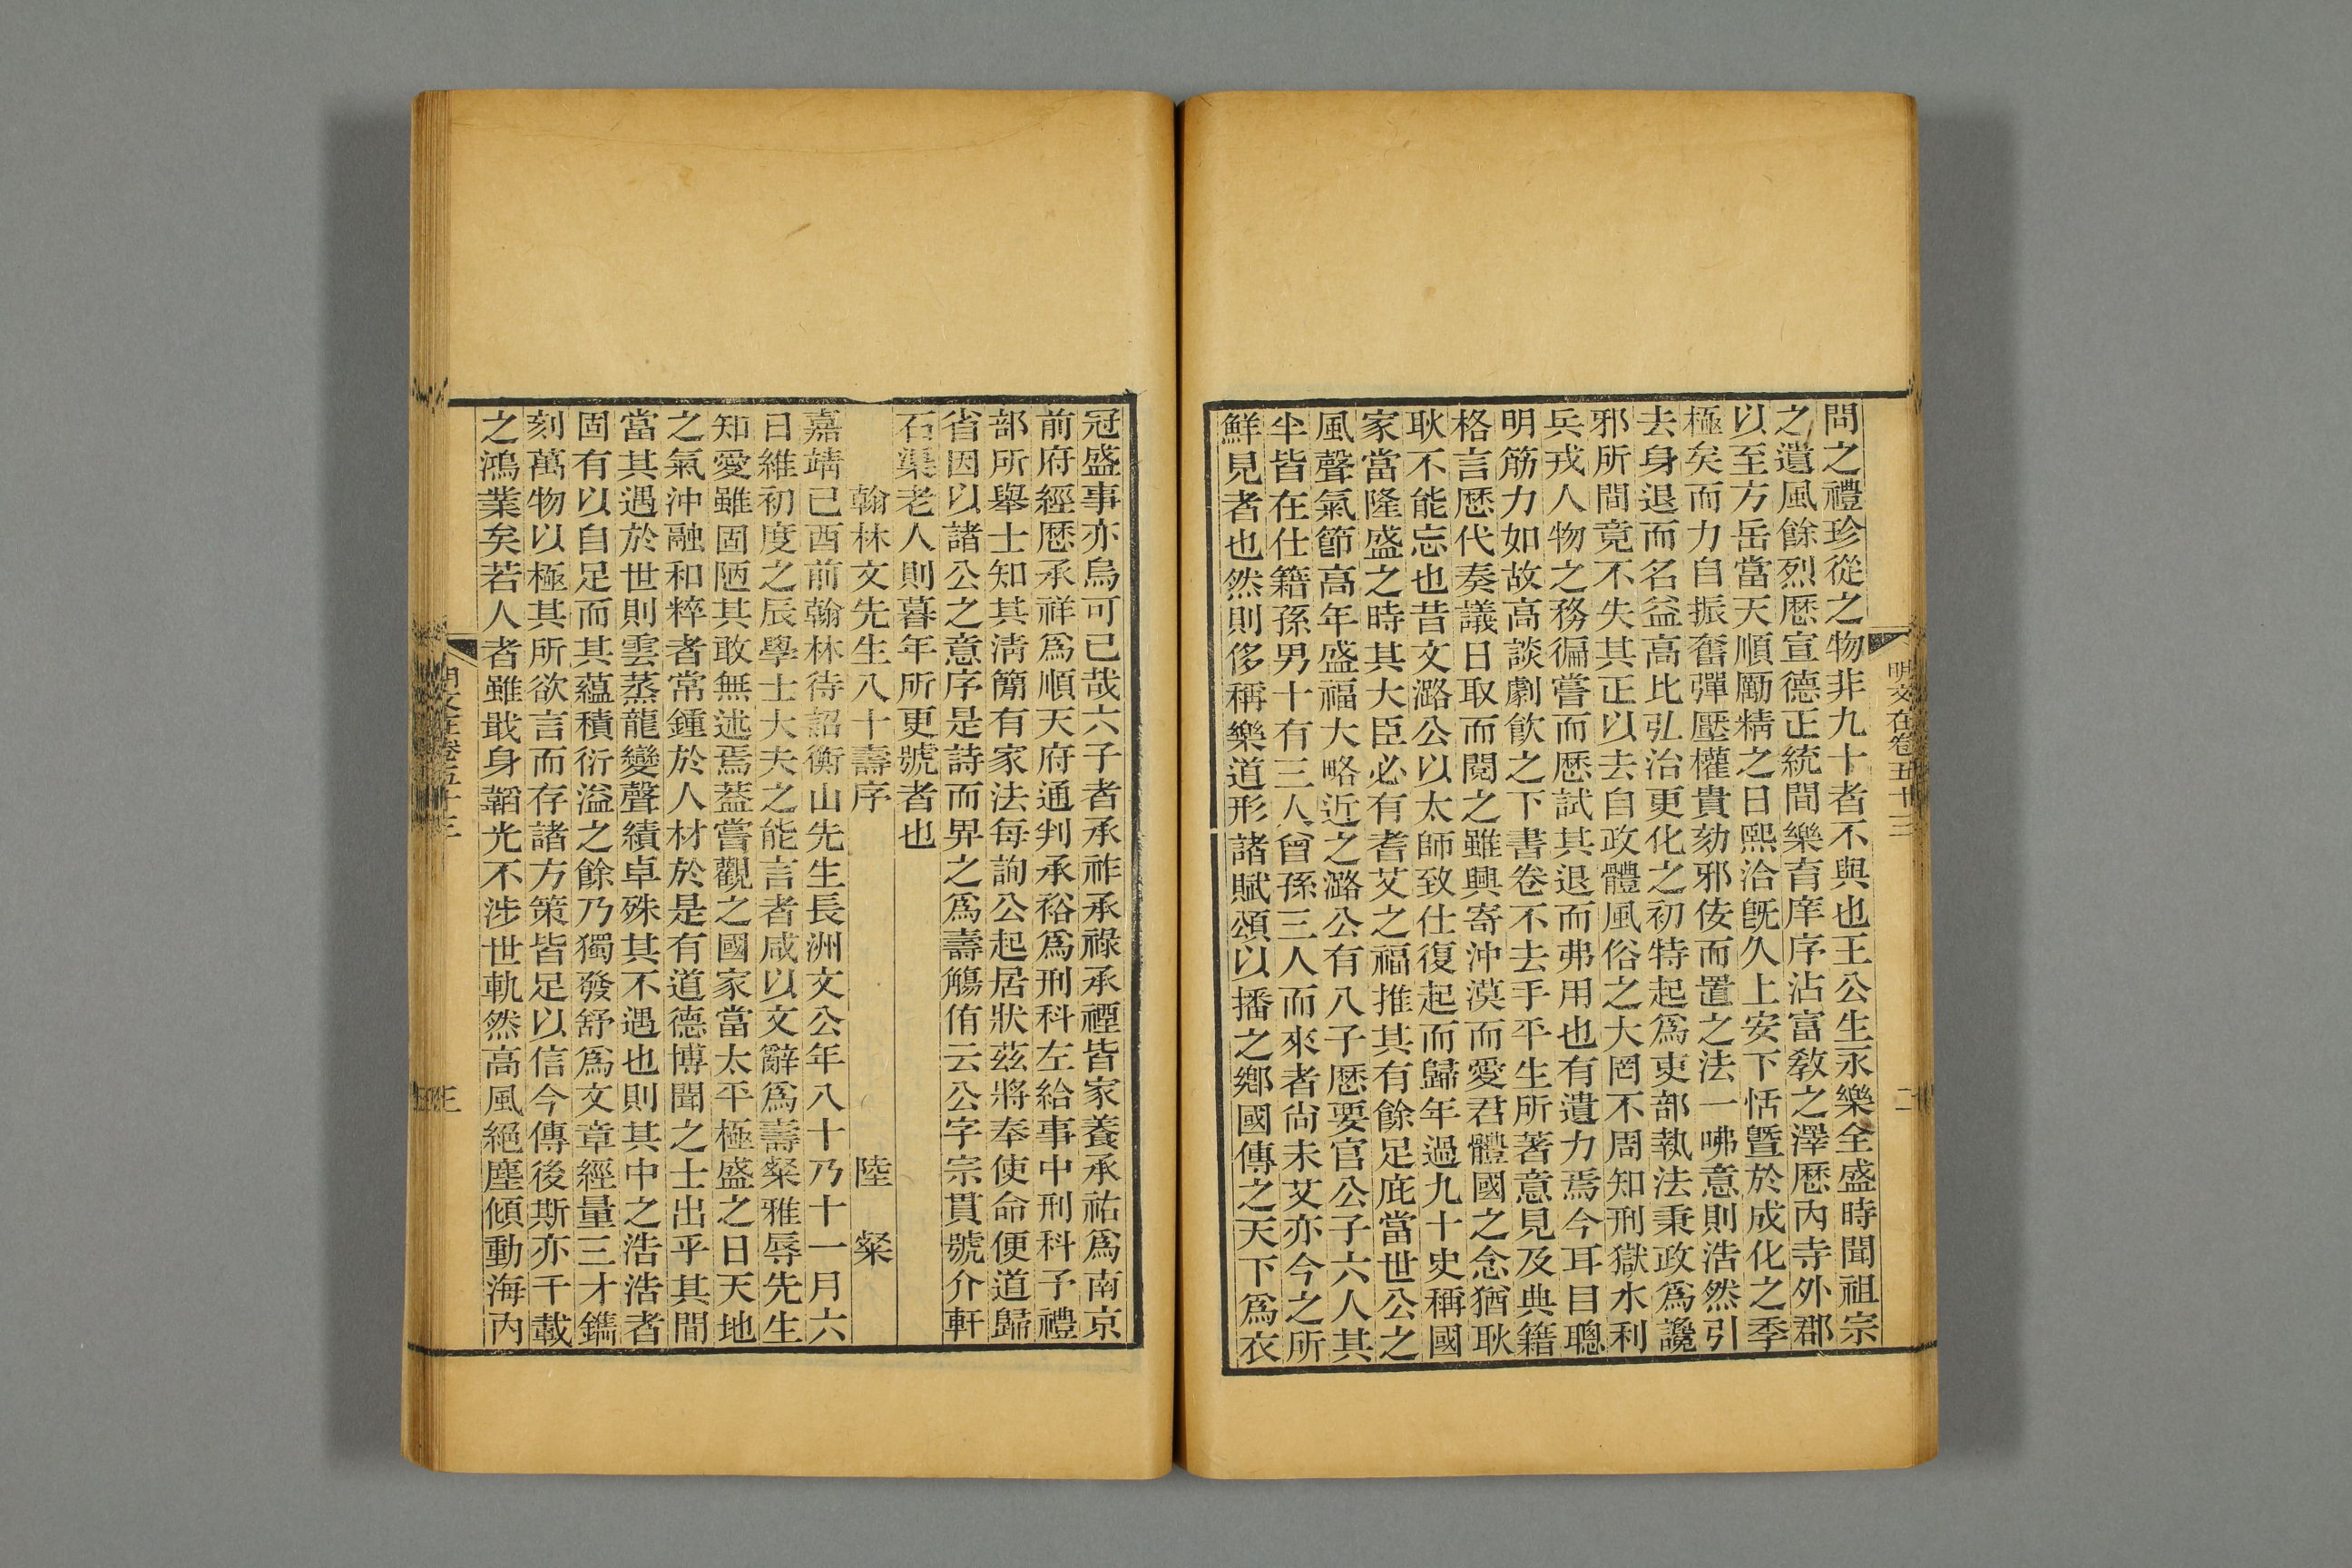 明文在卷五十三
二
問之禮珍從之物非九十者不與也王公生永樂全盛時聞祖宗
之遺風餘烈歷宣德正統間樂育庠序沾富敎之澤歷內寺外郡
以至方岳當天順勵精之日熙洽旣久上安下恬曁於成化之季
極矣而力自振奮彈壓權貴劾邪侫而置之法一咈意則浩然引
去身退而名益高比弘治更化之初特起爲吏部執法秉政爲讒
邪所間竟不失其正以去自政體風俗之大罔不周知刑獄水利
兵戎人物之務徧嘗而歷試其退而弗用也有遺力焉今耳目聰
明筋力如故高談劇飮之下書卷不去手平生所著意見及典籍
格言歷代奏議日取而閱之雖興寄沖漠而愛君體國之念猶耿
耿不能忘也昔文潞公以太師致仕復起而歸年過九十史稱國
家當隆盛之時其大臣必有耆艾之福推其有餘足庇當世公之
風聲氣節高年盛福大略近之潞公有八子歷要官公子六人其
半皆在仕籍孫男十有三人曾孫三人而來者尙未艾亦今之所
鮮見者也然則侈稱樂道形諸賦頌以播之鄕國傳之天下爲衣
冠盛事亦烏可已哉六子者承祚承祿承禋皆家養承祐爲南京
前府經歷承祥爲順天府通判承裕爲刑科左給事中刑科予禮
部所舉士知其淸簡有家法每詢公起居狀茲將奉使命便道歸
省因以諸公之意序是詩而畀之爲壽觴侑云公字宗貫號介軒
石渠老人則暮年所更號者也
翰林文先生八十壽序 陸粲
嘉靖己酉前翰林待詔衡山先生長洲文公年八十乃十一月六
日維初度之辰學士大夫之能言者咸以文辭爲壽粲雅辱先生
知愛雖固陋其敢無述焉蓋嘗觀之國家當太平極盛之日天地
之氣沖融和粹者常鍾於人材於是有道德博聞之士出乎其間
當其遇於世則雲蒸龍變聲績卓殊其不遇也則其中之浩浩者
固有以自足而其蘊積衍溢之餘乃獨發舒爲文章經量三才鐫
刻萬物以極其所欲言而存諸方策皆足以信今傳後斯亦千載
之鴻業矣若人者雖戢身韜光不涉世軌然高風絕塵傾動海內
明文在卷五十三
三